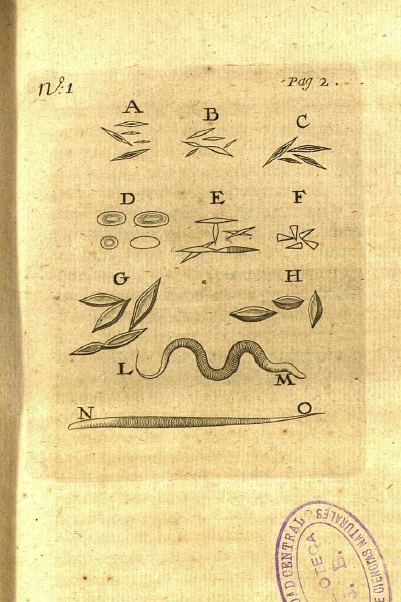 Nº: 1
Pag 2.
A
B
C
D
E
F
G
H
L
M
N
O
DAD CENTRAL
DE CIENCIAS NATURALES
OTECA
B.